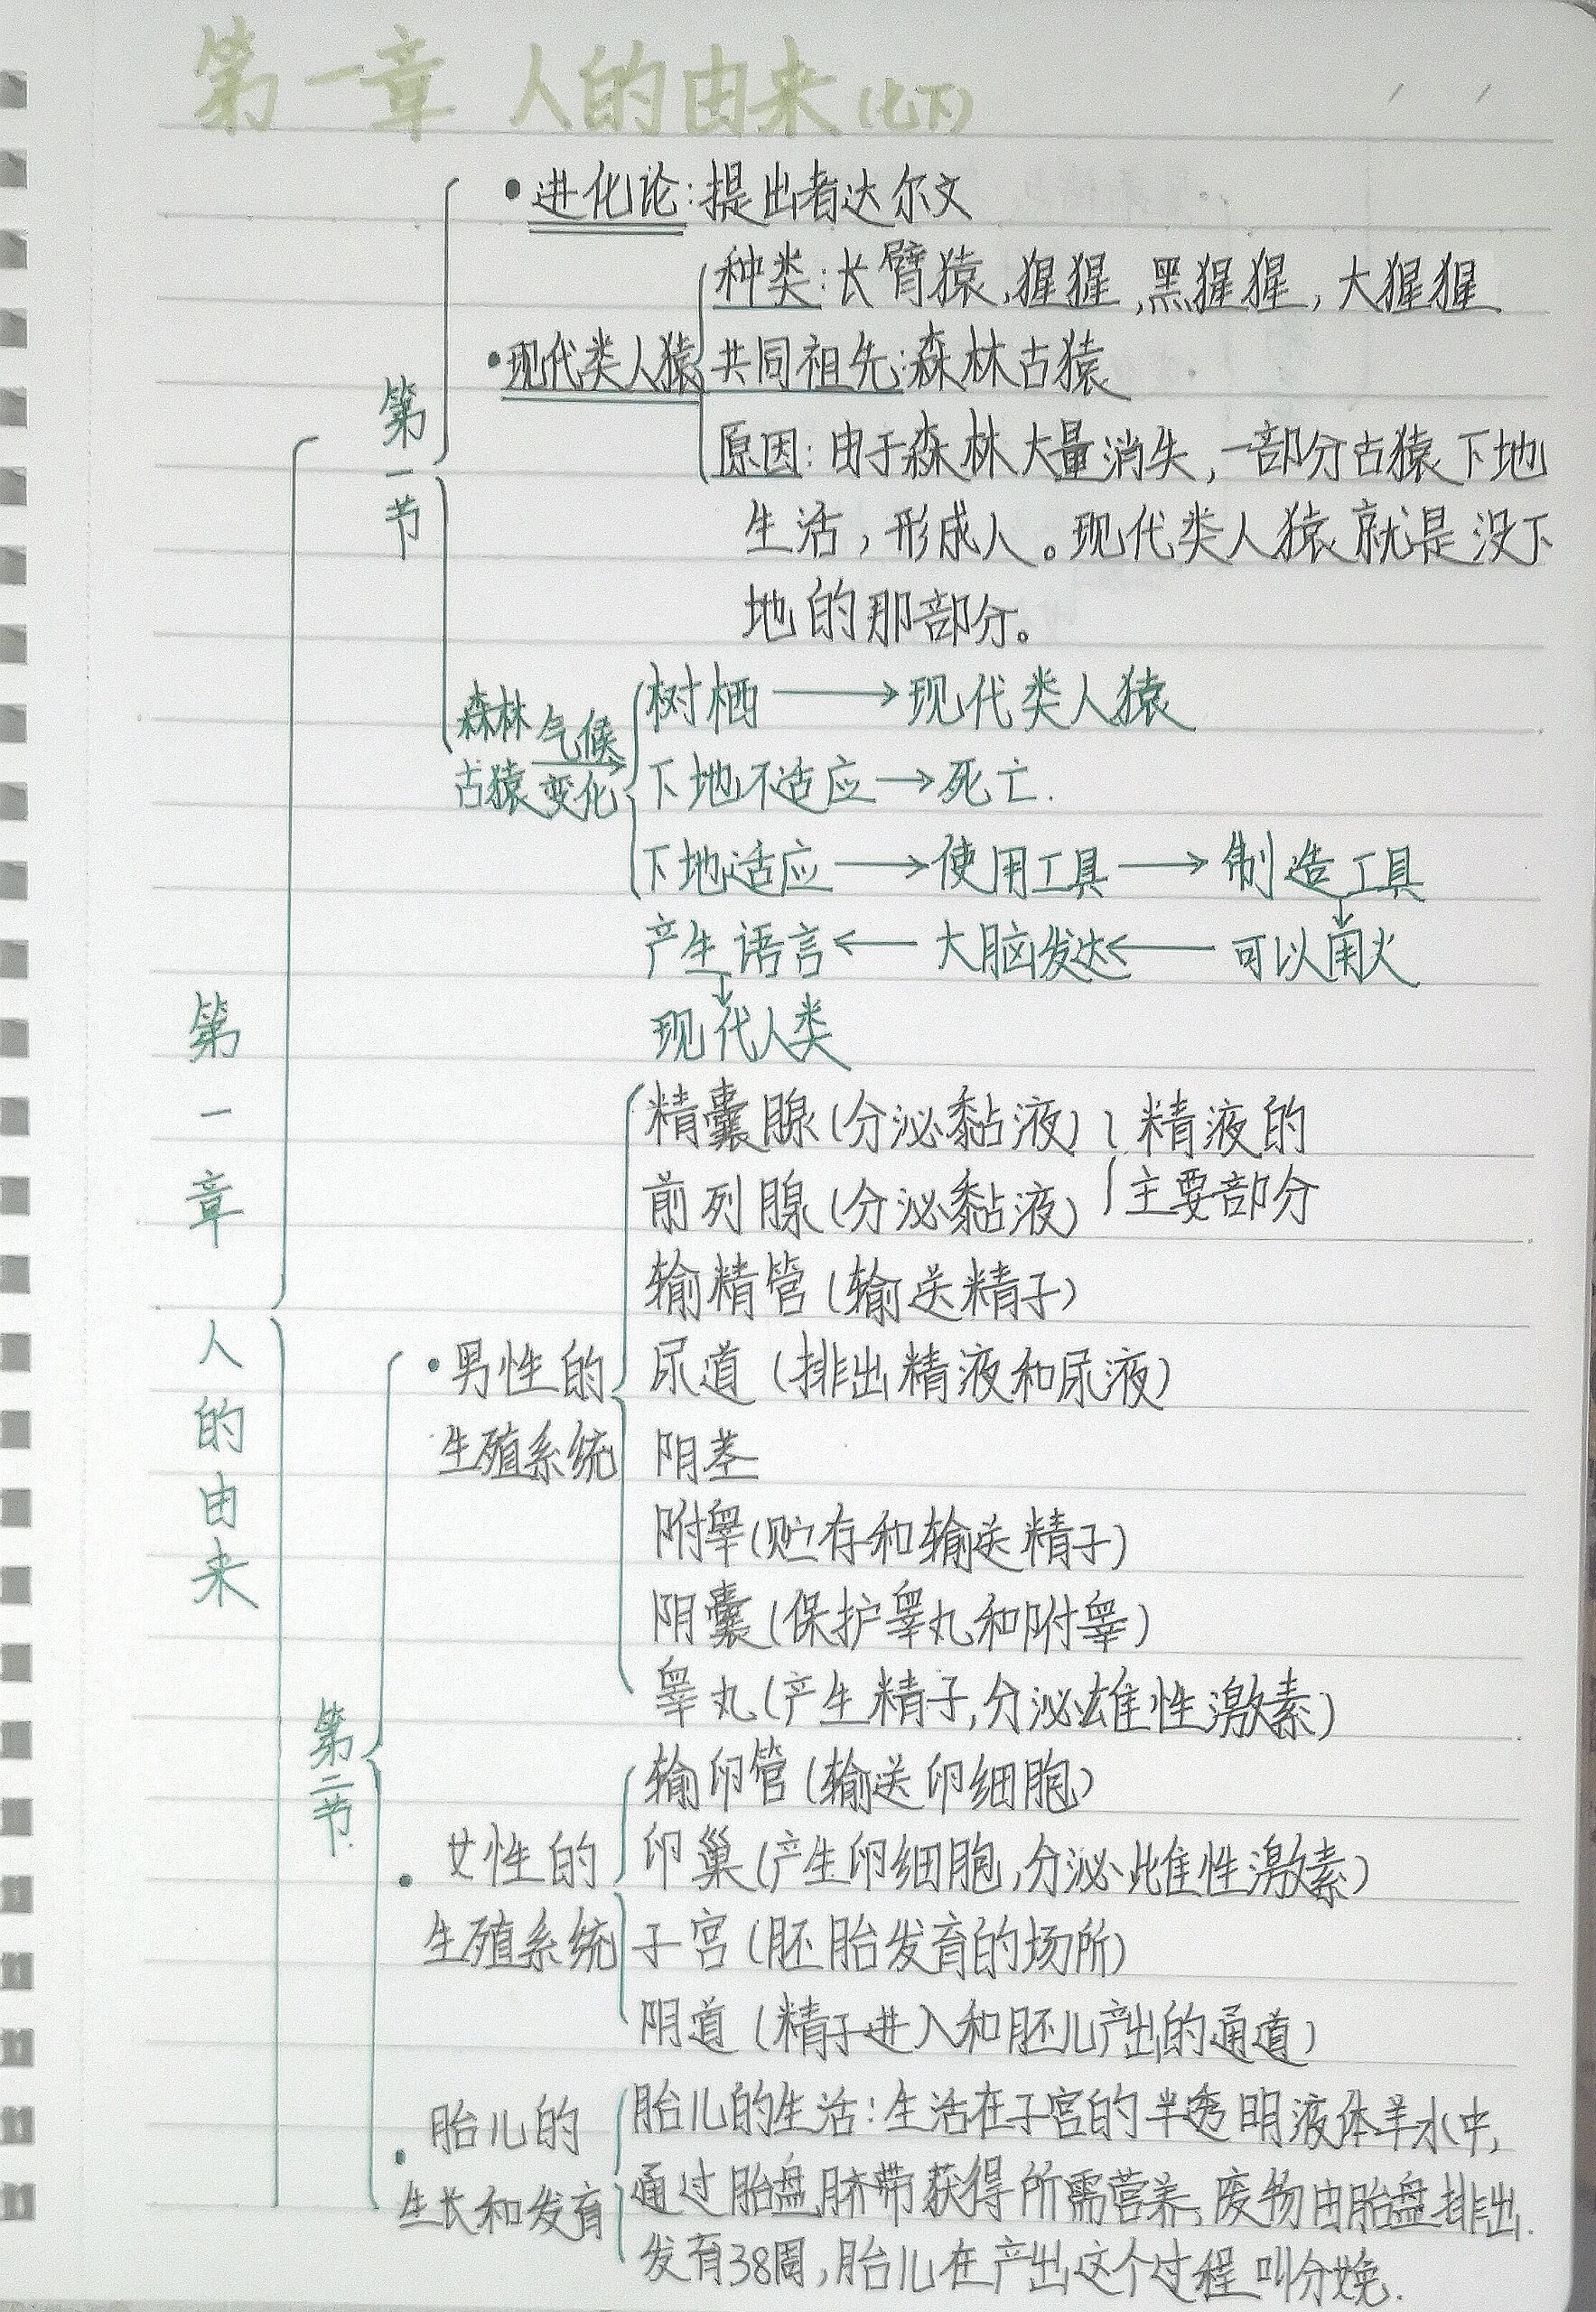 第一章 人的由来(七下)
•进化论:提出者达尔文
种类:长臂猿,猩猩,黑猩猩,大猩猩
•现代类人猿 共同祖先:森林古猿
第一节
原因:由于森林大量消失,一部分古猿下地
生活,形成人。现代类人猿就是没下
地的那部分。
森林古猿 气候变化
树栖→现代类人猿
下地不适应→死亡.
下地适应→使用工具→制造工具
↓
产生语言←大脑发达←可以用火
↓
现代人类
第一章 人的由来
精囊腺(分泌黏液)
前列腺(分泌黏液)
精液的
主要部分
输精管(输送精子)
•男性的
生殖系统
尿道(排出精液和尿液)
阴茎
附睾(贮存和输送精子)
阴囊(保护睾丸和附睾)
睾丸(产生精子,分泌雄性激素)
第二节.
•女性的
生殖系统
输卵管(输送卵细胞)
卵巢(产生卵细胞,分泌雌性激素)
子宫(胚胎发育的场所)
阴道(精子进入和胚儿产出的通道)
•胎儿的
生长和发育
胎儿的生活:生活在子宫的半透明液体羊水中,
通过胎盘,脐带获得所需营养,废物由胎盘排出.
发育38周,胎儿在产出这个过程叫分娩.